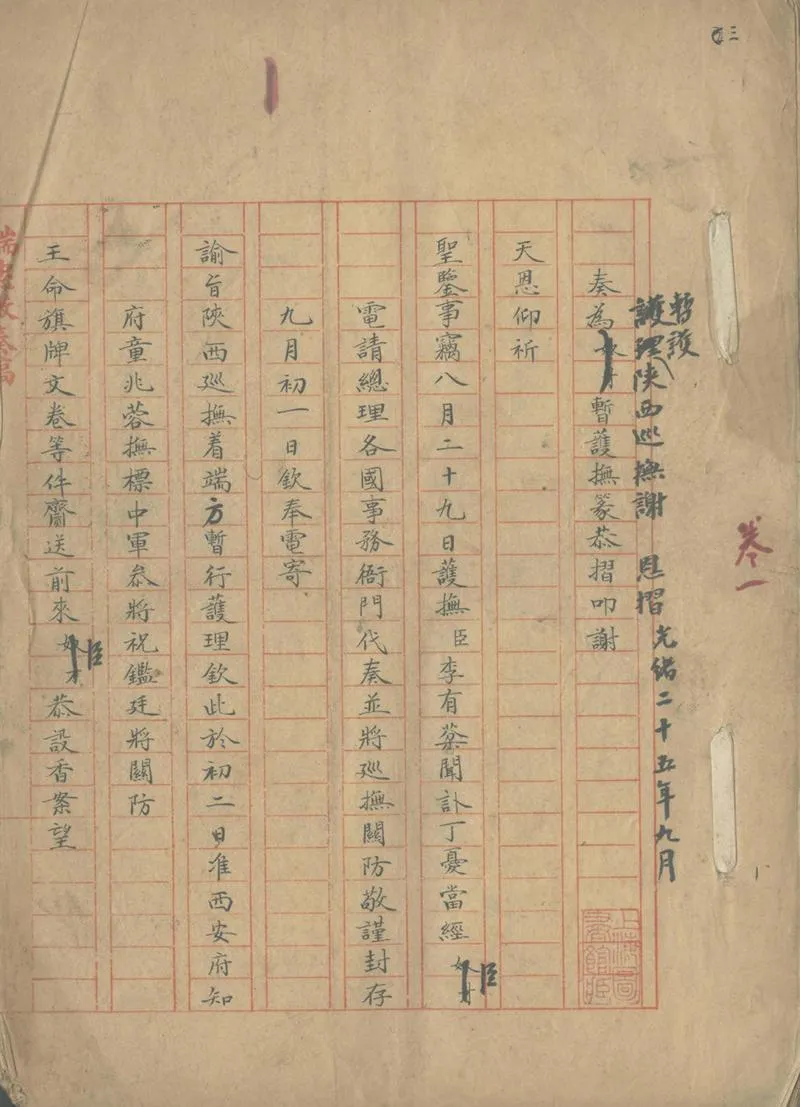 三
卷一
暫護
護理陝西巡撫謝 恩摺 光緒二十五年九月
奏為暫護撫篆恭摺叩謝
天恩仰祈
聖鑒事竊八月二十九日護撫臣李有棻聞訃丁憂當經臣
電請總理各國事務衙門代奏並將巡撫關防敬謹封存
九月初一日欽奉電寄
諭旨陝西巡撫着端方暫行護理欽此於初二日准西安府知
府童兆蓉撫標中軍叅將祝鑑廷將關防
王命旗牌文卷等件齎送前來臣恭設香案望
上海圖書館藏